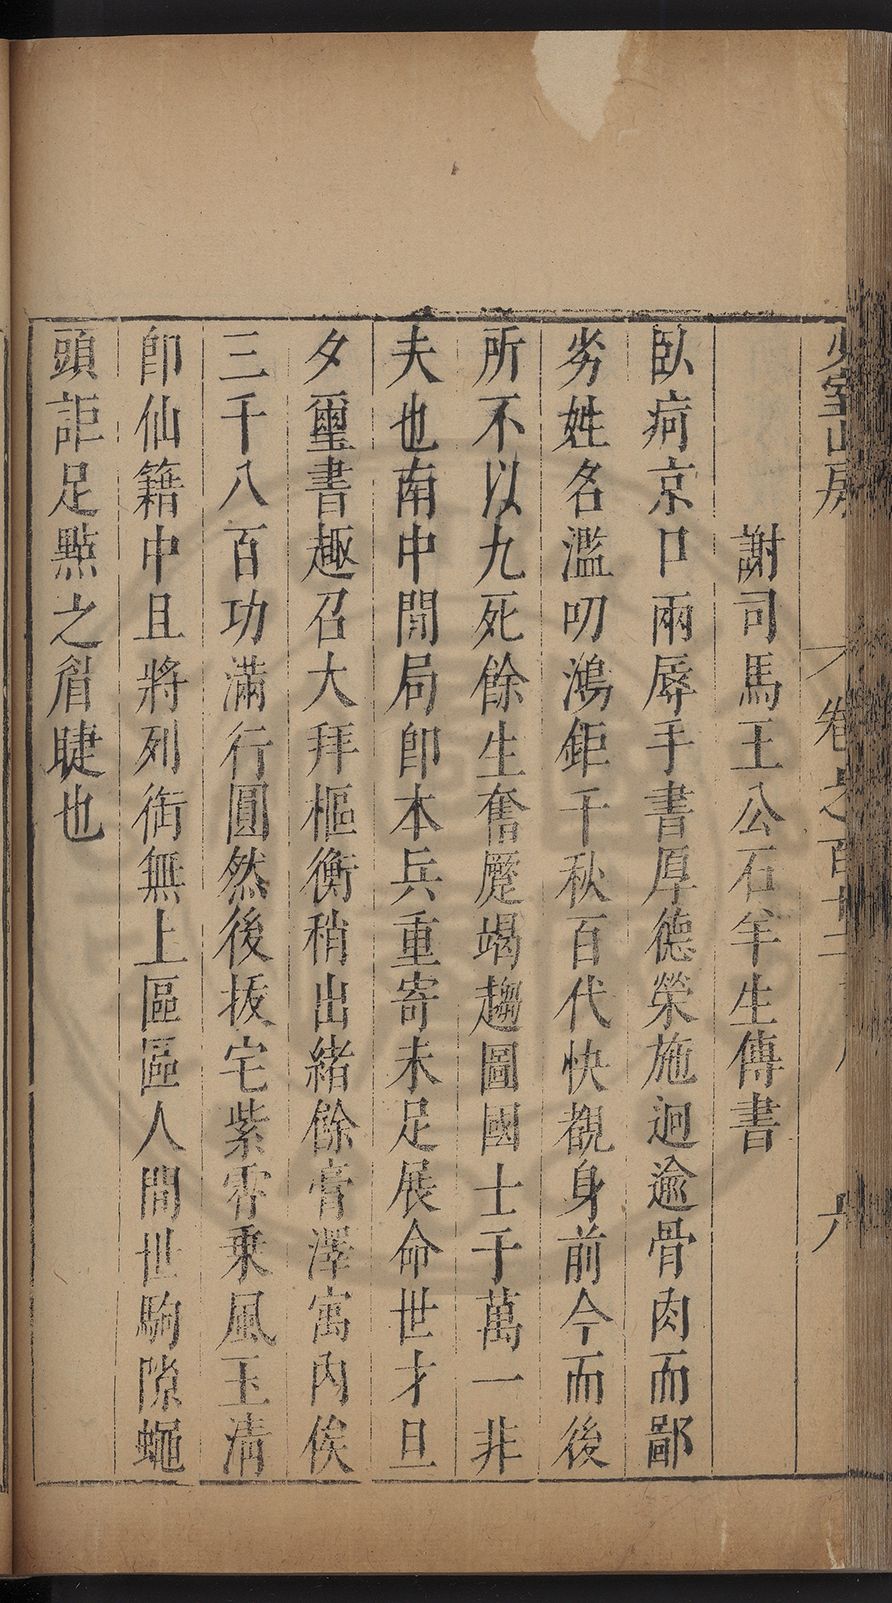 少室山房
卷之百十二
六
謝司馬王公石羊生傳書
臥疴京口兩辱手書厚德榮施迥逾骨肉而鄙
劣姓名濫叨鴻鉅千秋百代快覩身前今而後
所不以九死餘生奮蹷竭趨圖國士于萬一非
夫也南中閒局卽本兵重寄未足展命世才旦
夕璽書趣召大拜樞衡稍出緒餘膏澤寓內俟
三千八百功滿行圓然後拔宅紫霄乘風玉清
卽仙籍中且將列銜無上區區人間世駒隙蠅
頭詎足點之眉睫也